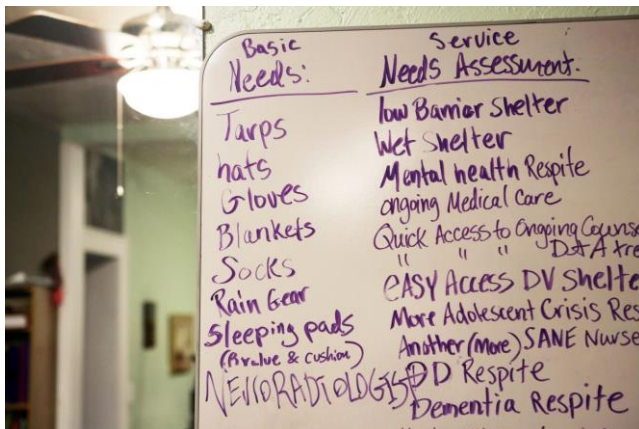 Basic
Needs:
Tarps
hats
Gloves
Blankets
Socks
Rain Gear
Sleeping pads
(Rvalue & cushion)
NEUORADIOLOGIST
Service
Needs Assessment:
low Barrior Shelter
Wet Shelter
Mental health Respite
ongoing Medical Care
Quick Access to Ongoing Counse
" " " D+A tre
eASY Access DV Shelte
More Adolescent Crisis Res
Another (more) SANE Nurse
DD Respite
Dementia Respite